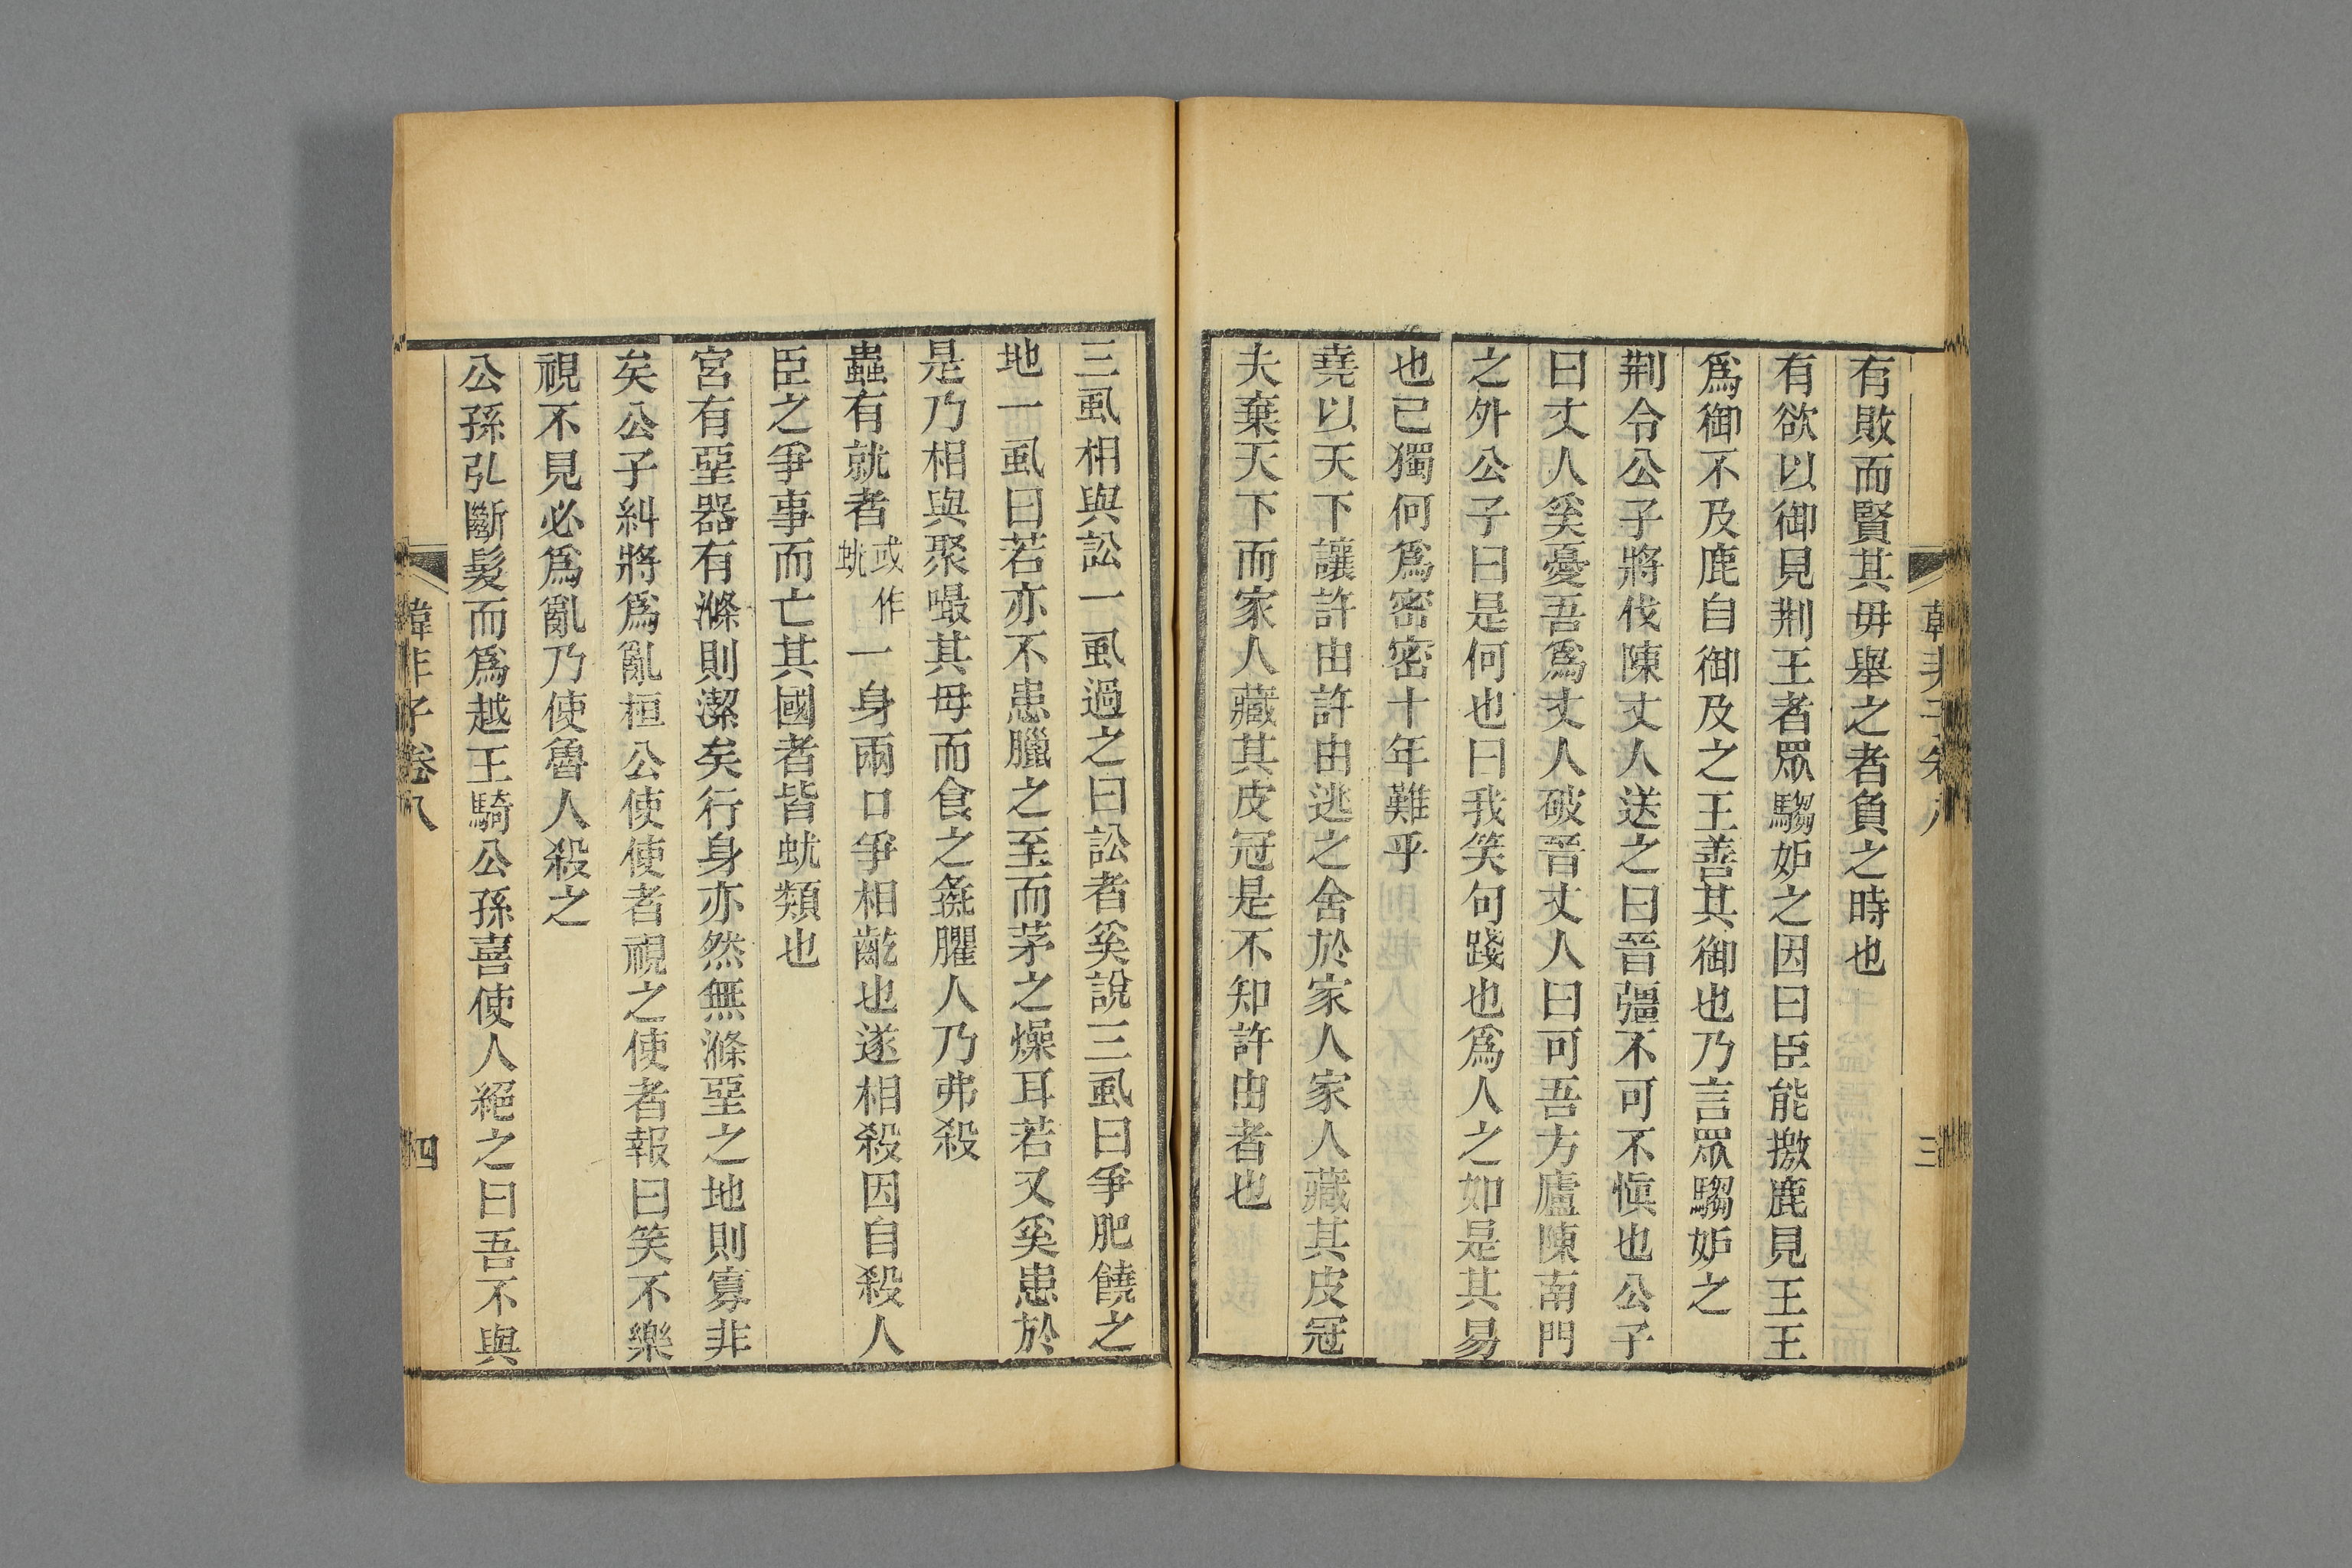 韓非子卷八
三
有敗而賢其毋舉之者負之時也
有欲以御見荆王者眾騶妒之因曰臣能撽鹿見王王
爲御不及鹿自御及之王善其御也乃言眾騶妒之
荆令公子將伐陳丈人送之曰晉彊不可不愼也公子
曰丈人奚憂吾爲丈人破晉丈人曰可吾方廬陳南門
之外公子曰是何也曰我笑句踐也爲人之如是其易
也己獨何爲密密十年難乎
堯以天下讓許由許由逃之舍於家人家人藏其皮冠
夫棄天下而家人藏其皮冠是不知許由者也
三虱相與訟一虱過之曰訟者奚說三虱曰爭肥饒之
地一虱曰若亦不患臘之至而茅之燥耳若又奚患於
是乃相與聚嘬其母而食之彘臞人乃弗殺
蟲有就者或作蚘一身兩口爭相齕也遂相殺因自殺人
臣之爭事而亡其國者皆蚘類也
宮有堊器有滌則潔矣行身亦然無滌堊之地則寡非
矣公子糾將爲亂桓公使使者視之使者報曰笑不樂
視不見必爲亂乃使魯人殺之
公孫弘斷髮而爲越王騎公孫喜使人絕之曰吾不與
韓非子卷八
四